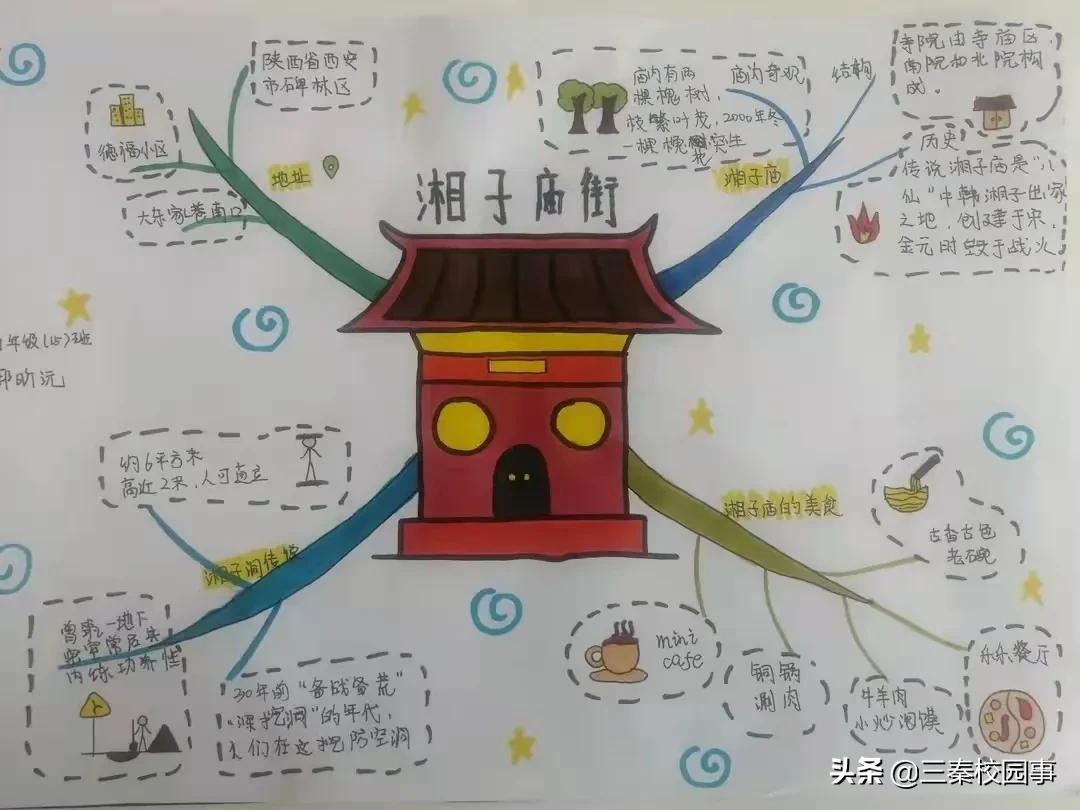 湘子庙街
地址
陕西省西安
市碑林区
德福小区
大车家巷南口
湘子庙
庙内奇观
庙内有两
棵槐树，
枝繁叶茂，2000年冬
一棵槐
结构
寺院由寺庙区，
南院和北院构
成。
历史
传说湘子庙是“八
仙”中韩湘子出家
之地，创建于宋，
金元时毁于战火
年级(15)班
昕沅
湘子洞传说
约6平方米
高近2米，人可直立
曾聚一地下
密室常居其
内练功养性
30年前“备战备荒”
“深挖洞”的年代，
人们在这挖防空洞
湘子庙的美食
古香古色
老石碗
mini
cafe
铜锅
涮肉
牛羊肉
小炒泡馍
乐乐餐厅
头条 @三秦校园事